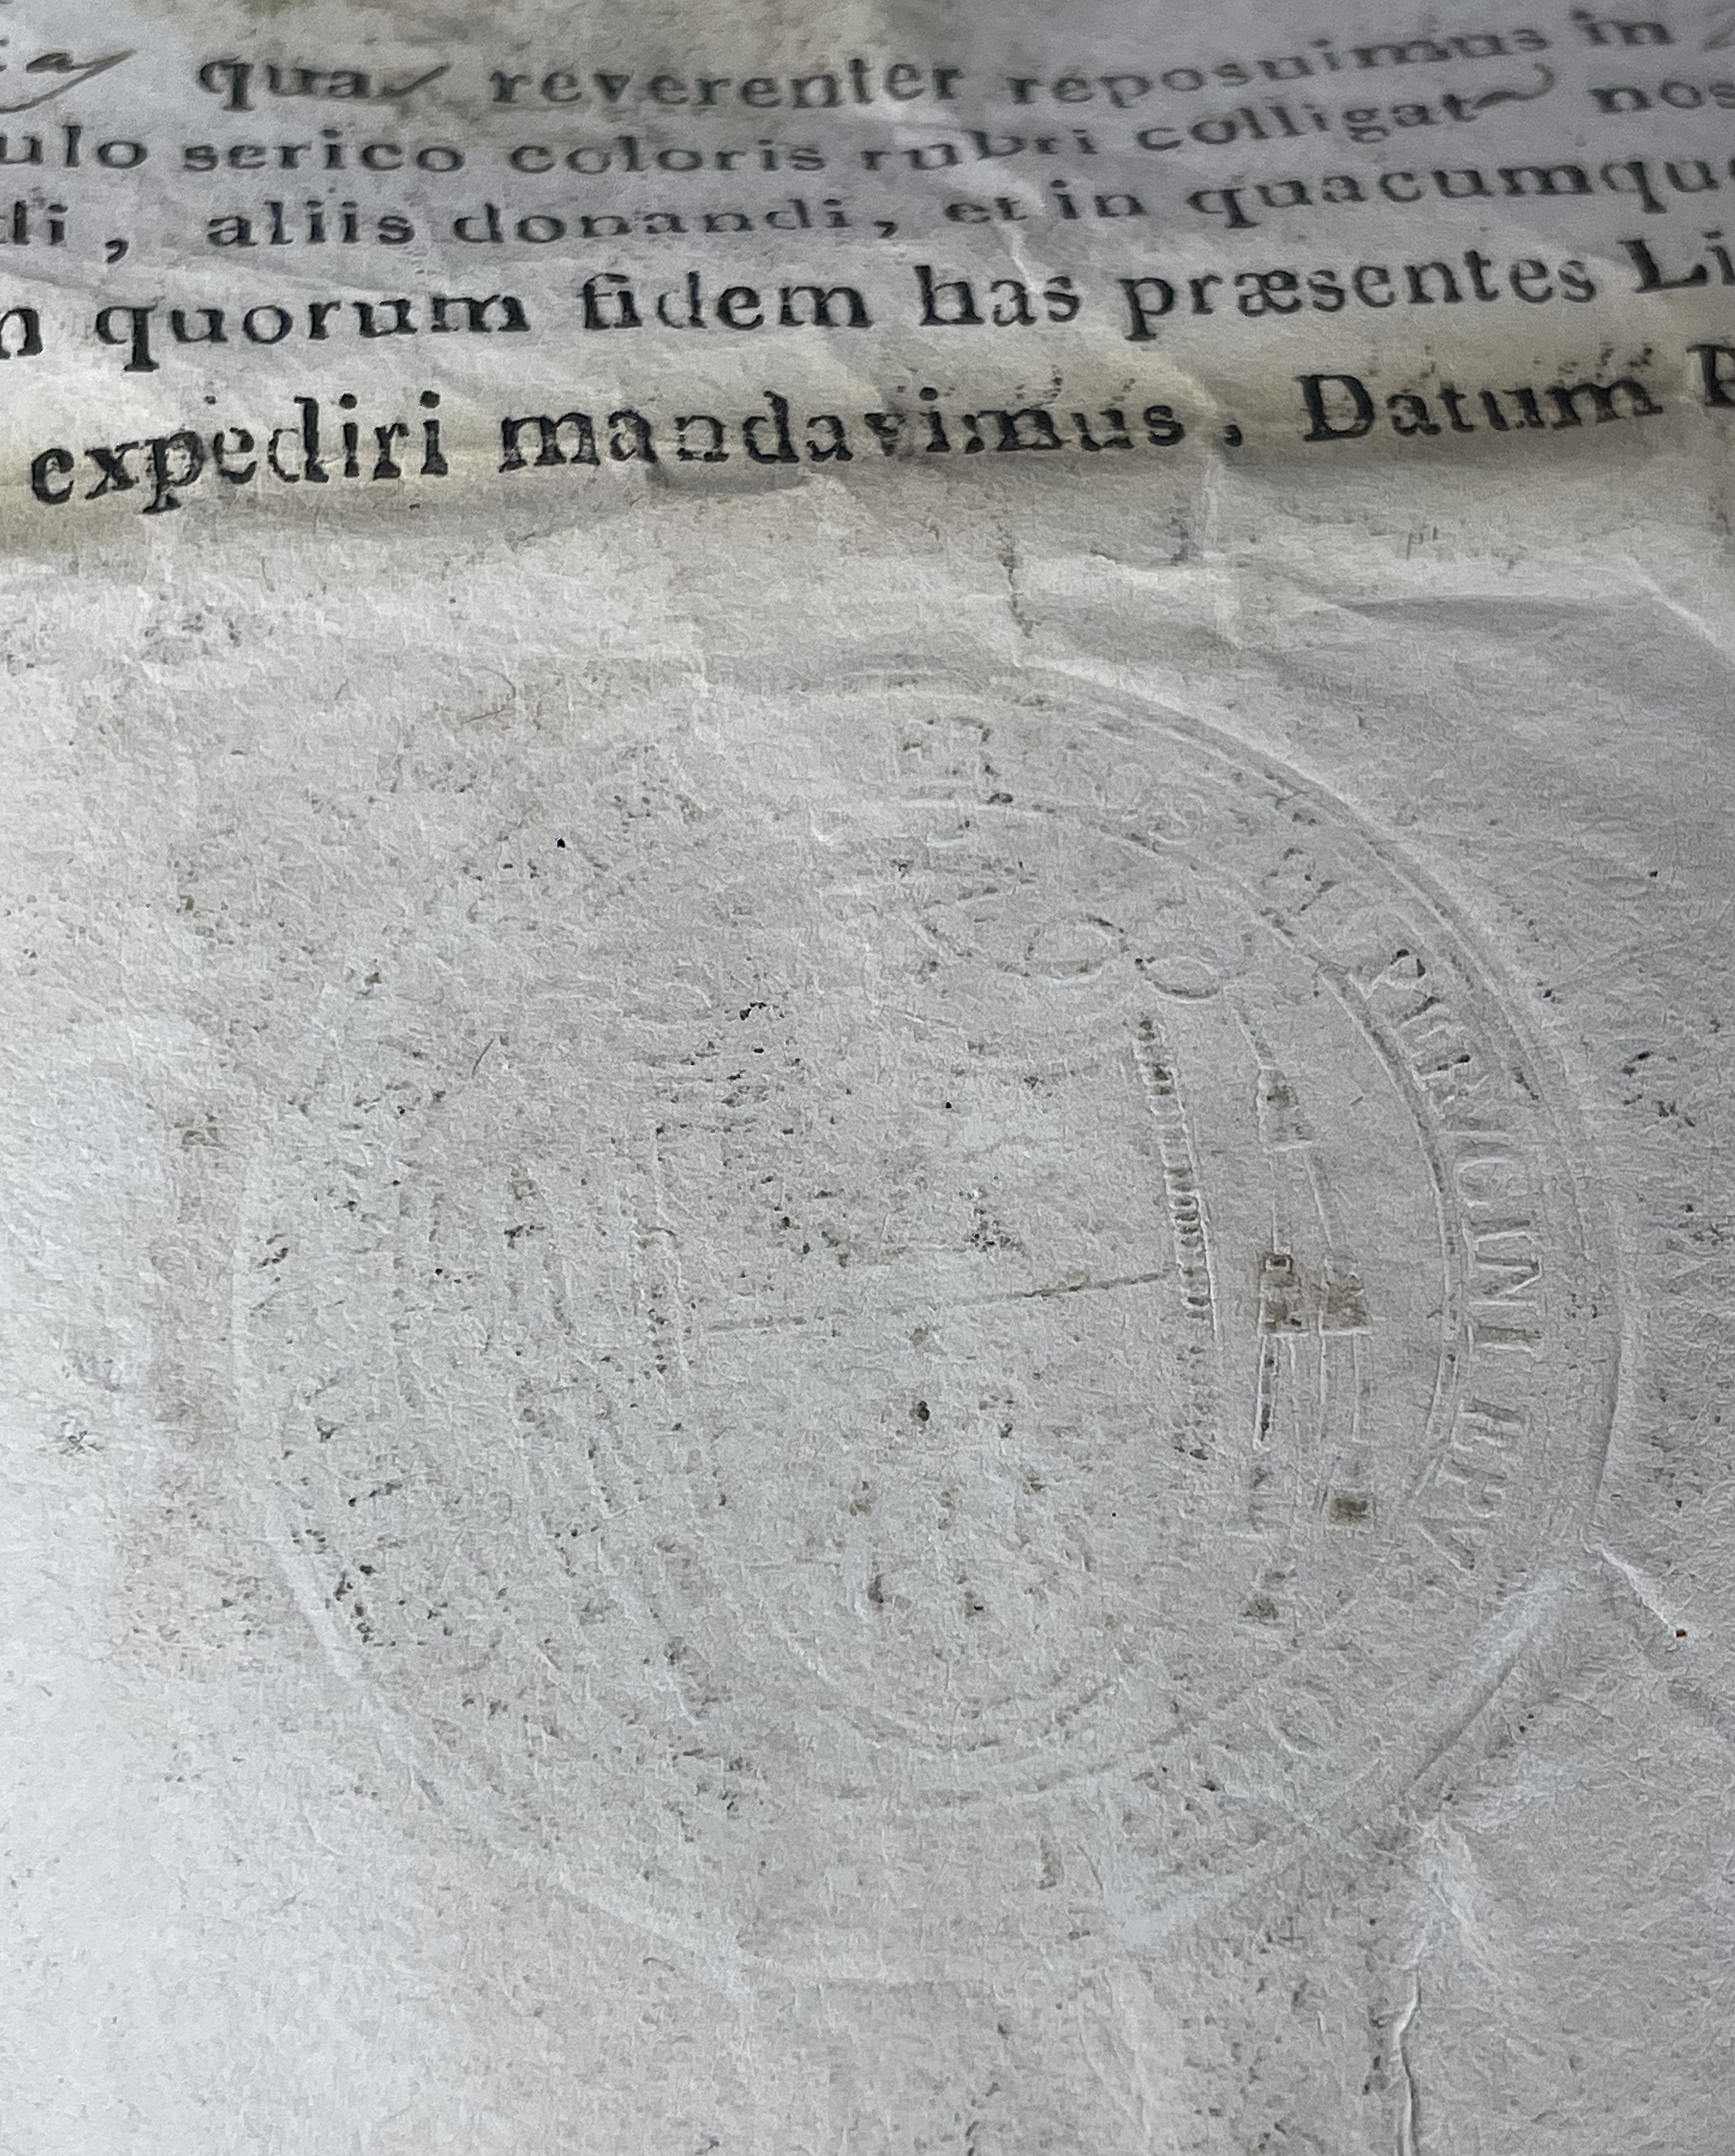 qua reverenter reposuimus in
ulo serico coloris rubri colligat nos
di, aliis donandi, et in quacumque
n quorum fidem has præsentes Li
expediri mandavimus, Datum